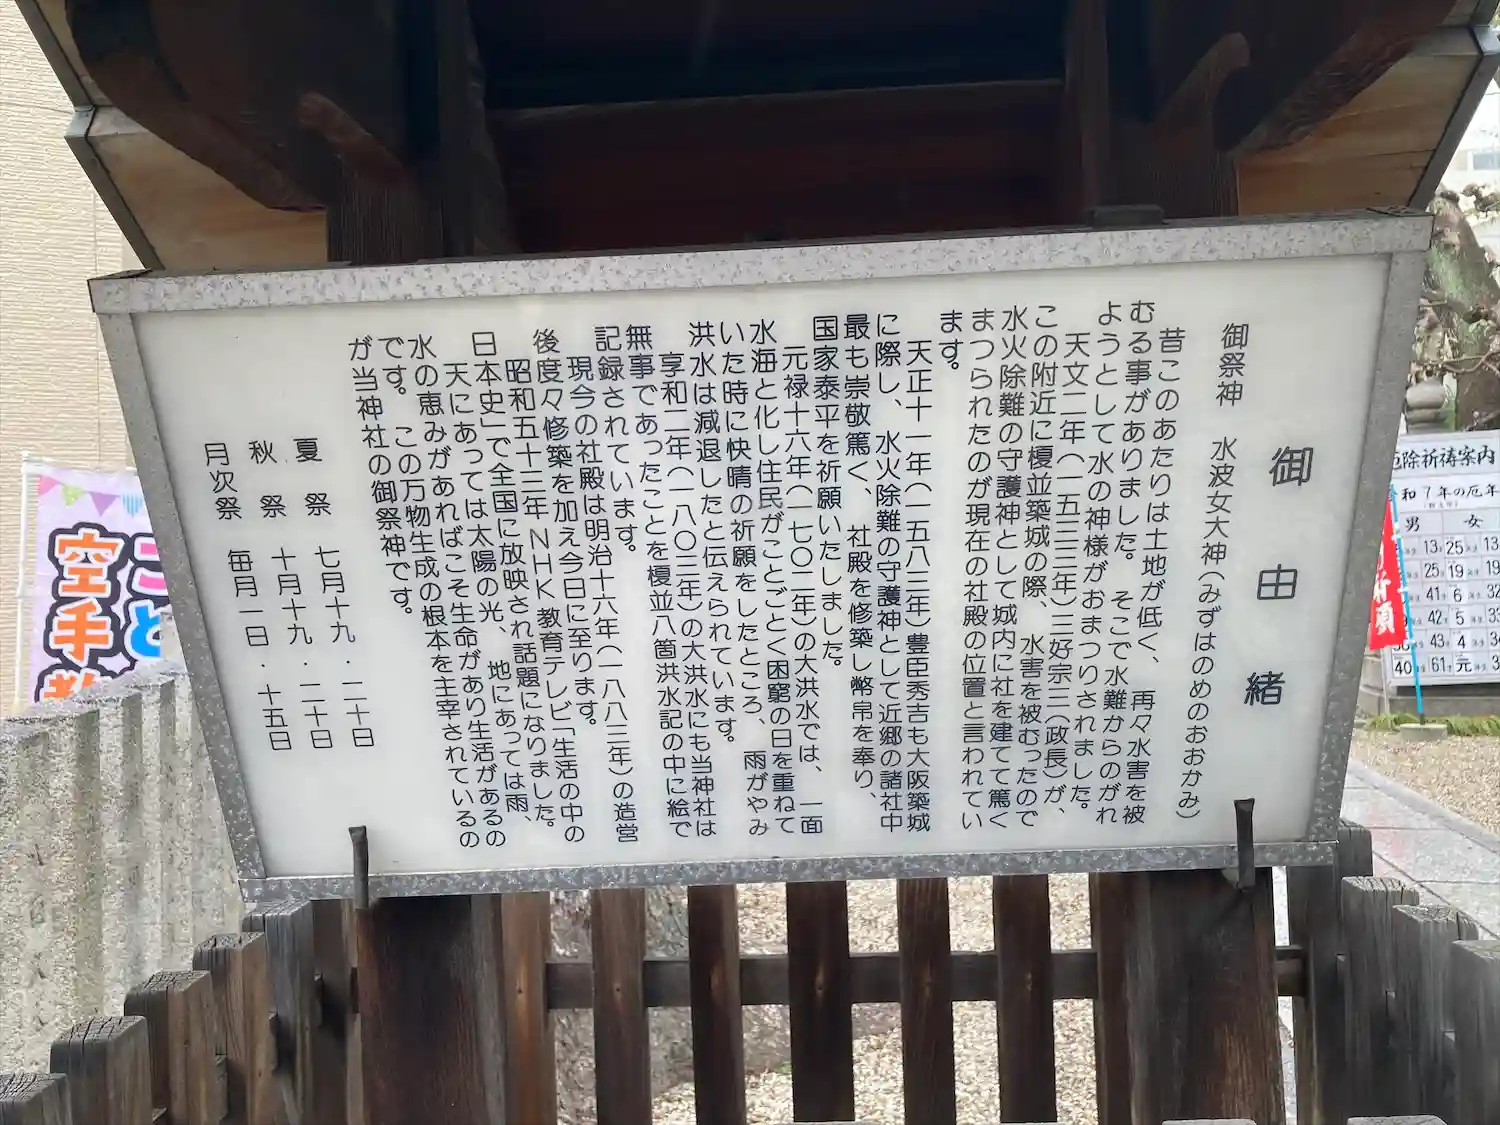 御由緒
御祭神　水波女大神(みずはのめのおおかみ)
昔このあたりは土地が低く、再々水害を被
むる事がありました。そこで水難からのがれ
ようとして水の神様がおまつりされました。
天文二年(一五三三年)三好宗三(政長)が、
この附近に榎並築城の際、水害を被むったので
水火除難の守護神として城内に社を建てて篤く
まつられたのが現在の社殿の位置と言われてい
ます。
天正十一年(一五八三年)豊臣秀吉も大阪築城
に際し、水火除難の守護神として近郷の諸社中
最も崇敬篤く、社殿を修築し幣帛を奉り、
国家泰平を祈願いたしました。
元禄十六年(一七〇二年)の大洪水では、一面
水海と化し住民がことごとく困窮の日を重ねて
いた時に快晴の祈願をしたところ、雨がやみ
洪水は減退したと伝えられています。
享和二年(一八〇二年)の大洪水にも当神社は
無事であったことを榎並八箇洪水記の中に絵で
記録されています。
現今の社殿は明治十六年(一八八三年)の造営
後度々修築を加え今日に至ります。
昭和五十三年NHK教育テレビ「生活の中の
日本史」で全国に放映され話題になりました。
天にあっては太陽の光、地にあっては雨、
水の恵みがあればこそ生命があり生活があるの
です。この万物生成の根本を主宰されているの
が当神社の御祭神です。
夏祭　七月十九・二十日
秋祭　十月十九・二十日
月次祭　毎月一日・十五日
厄除祈祷案内
和7年の厄年
男　女
空手